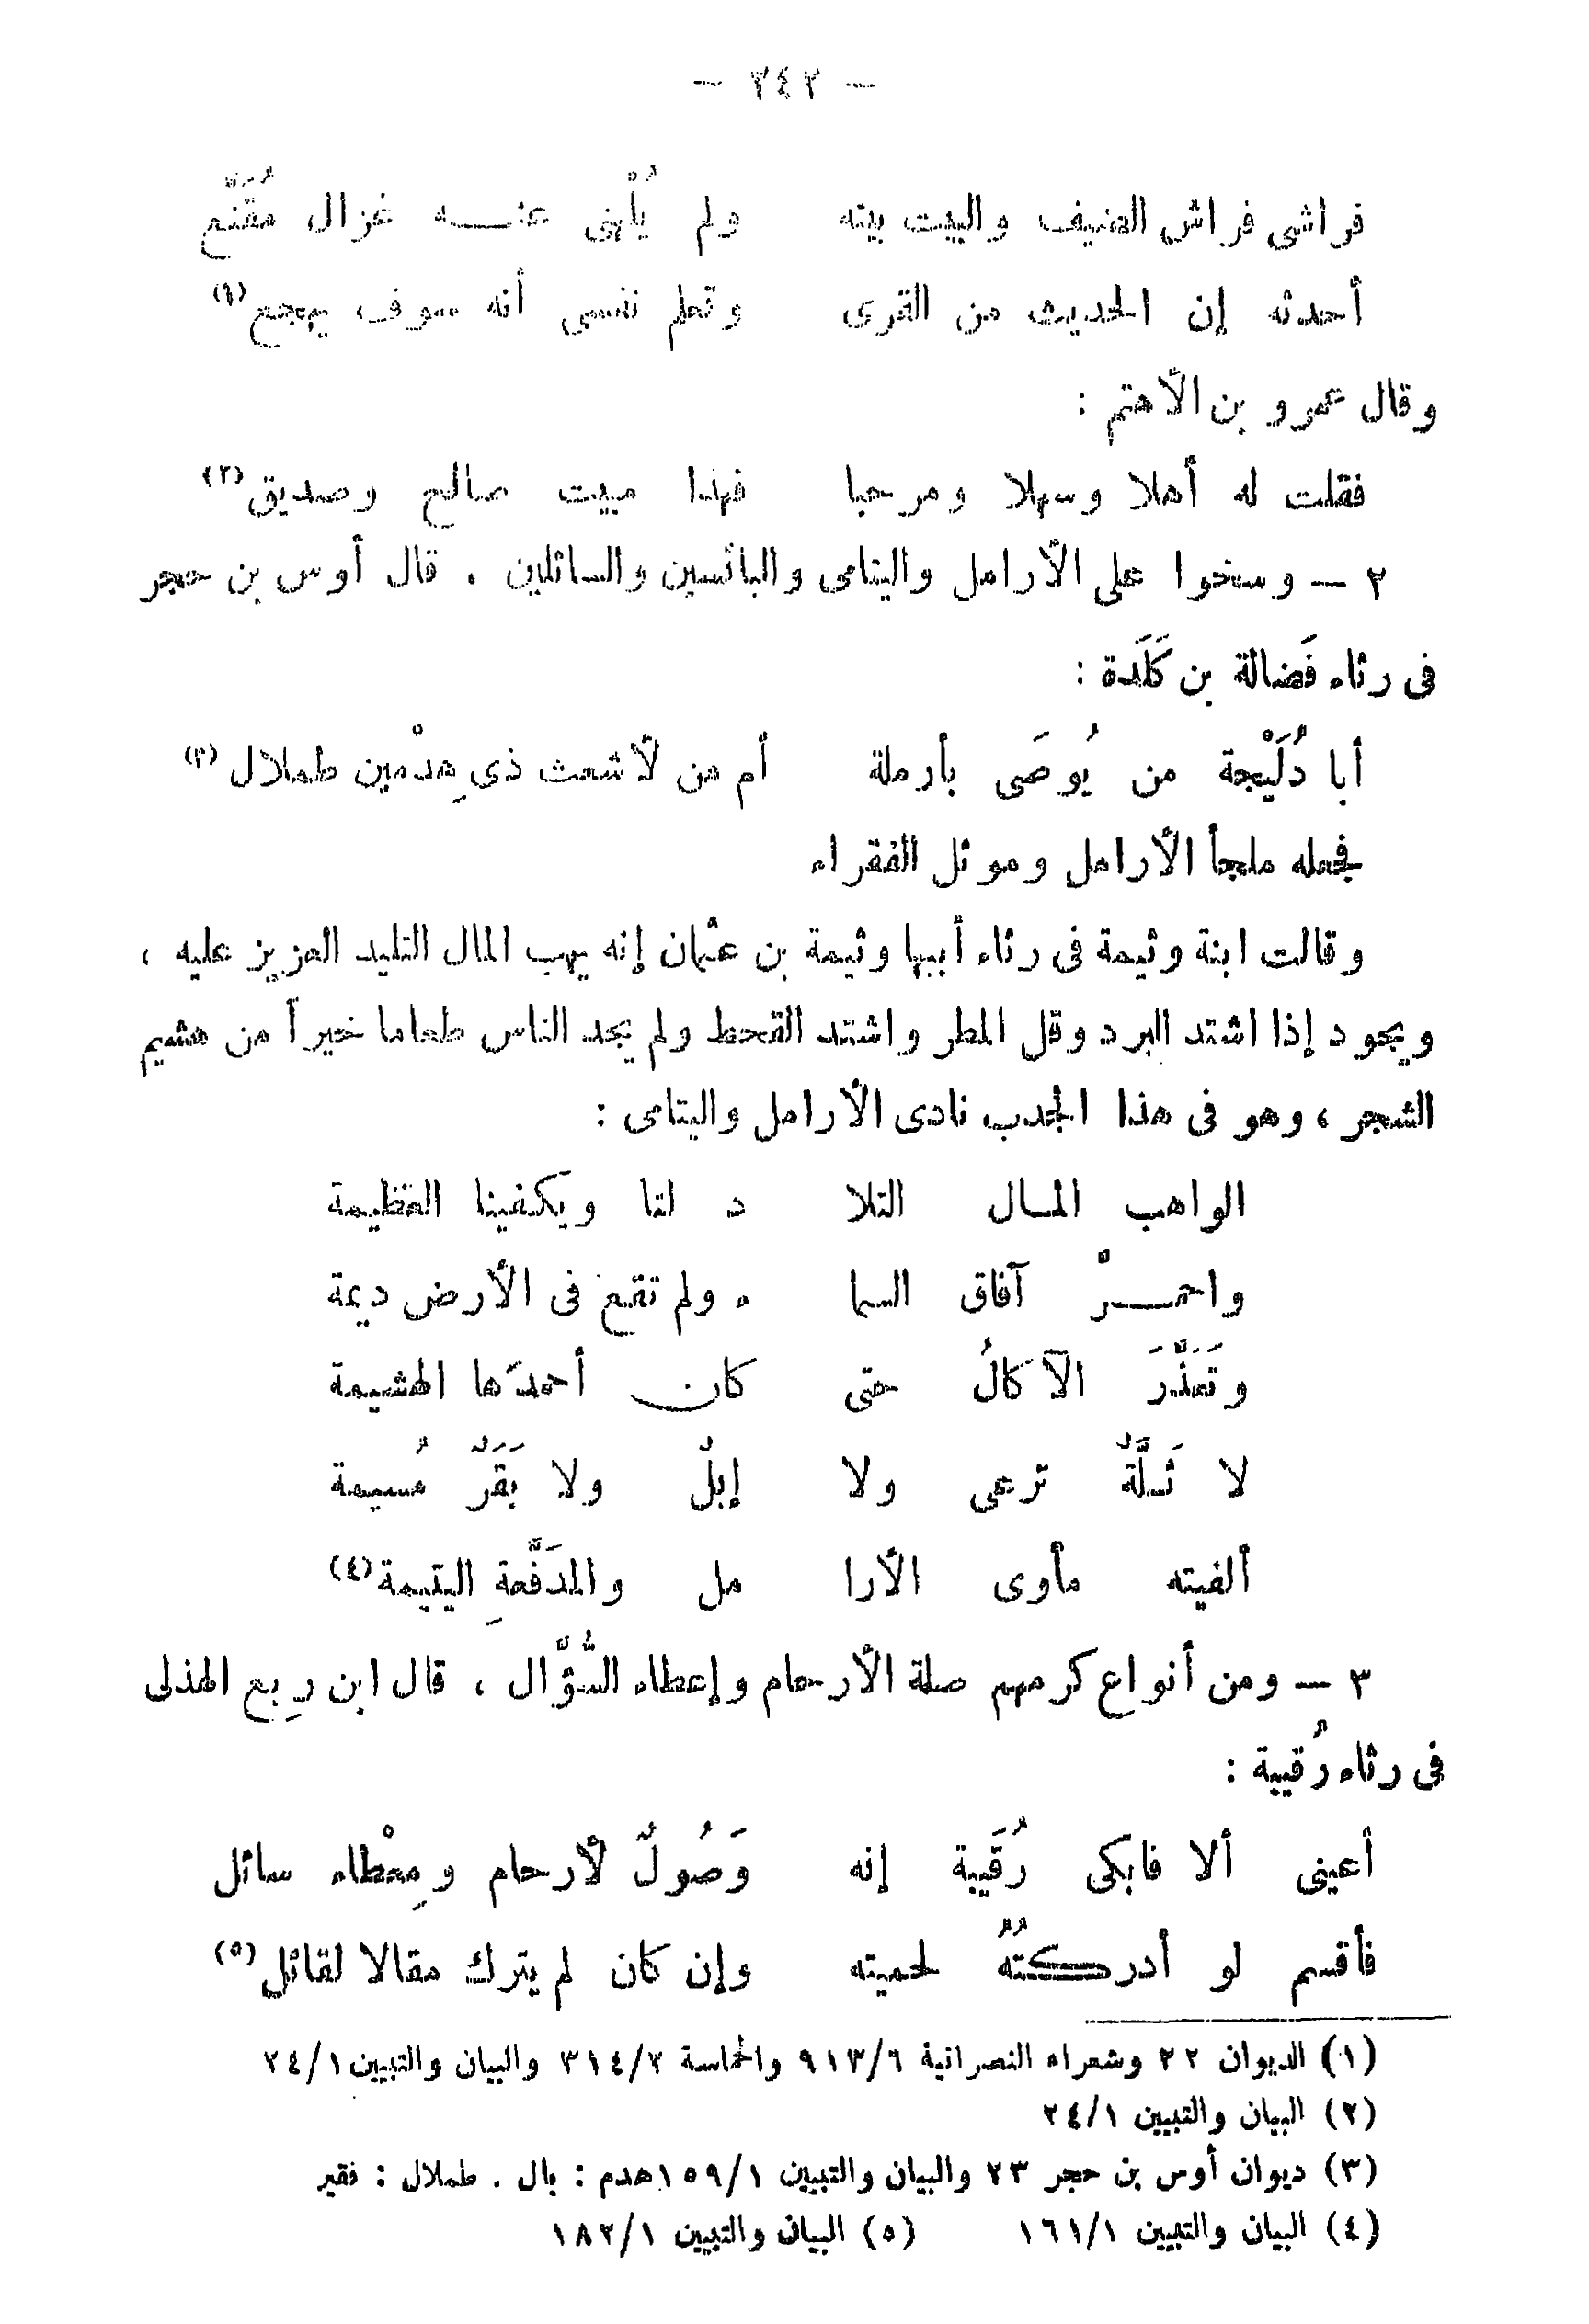 — ٢٤٢ —
فراشى فراش الضيف والبيت بيته ولم يُلْهنى عنـــه غزال مُقَنَّع
أحدثه إن الحديث من القرى وتعلم نفسى أنه سوف يهجع (١)
وقال عمرو بن الأهتم :
فقلت له أهلا وسهلا ومرحبا فهذا مبيت صالح وصديق (٢)
٢ — وسخوا على الأرامل واليتامى والبائسين والسائلين . قال أوس بن حجر
فى رثاء فَضالة بن كَلَدة :
أبا دُلَيْجة من يُوصَى بأرملة أم من لأشعث ذى هِدْمين طملال (٣)
فجعله ملجأ الأرامل وموئل الفقراء
وقالت ابنة وثيمة فى رثاء أبيها وثيمة بن عثمان إنه يهب المال التليد العزيز عليه ،
ويجود إذا اشتد البرد وقل المطر واشتد القحط ولم يجد الناس طعاما خيراً من هشيم
الشجر ، وهو فى هذا الجدب نادى الأرامل واليتامى :
الواهب المـال التلا د لنا ويَكفينا العظيمة
واحمـــرّْ آفاق السما ء ولم تقع فى الأرض ديمة
وتَعَذَّرَ الآكالُ حتى كان أحمدَها الهشيمة
لا ثَـلَّةٌ ترعى ولا إبلٌ ولا بَقَرٌ مُسيمة
ألفيته مأوى الأرا مل والمدَفَّعةِ اليتيمة (٤)
٣ — ومن أنواع كرمهم صلة الأرحام وإعطاء السُّؤَّال ، قال ابن رِبع الهذلى
فى رثاء رُقيبة :
أعينى ألا فابكى رُقَيبة إنه وَصُولٌ لأرحام ومِعْطاء سائل
فأقسم لو أدركتُهُ لحميته وإن كان لم يترك مقالا لقائل (٥)
(١) الديوان ٢٢ وشعراء النصرانية ٩١٣/٦ والحماسة ٣١٤/٢ والبيان والتبيين ٢٤/١
(٢) البيان والتبيين ٢٤/١
(٣) ديوان أوس بن حجر ٢٣ والبيان والتبيين ١٥٩/١ هدم : بال . طملال : فقير
(٤) البيان والتبيين ١٦١/١ (٥) البيان والتبيين ١٨٢/١